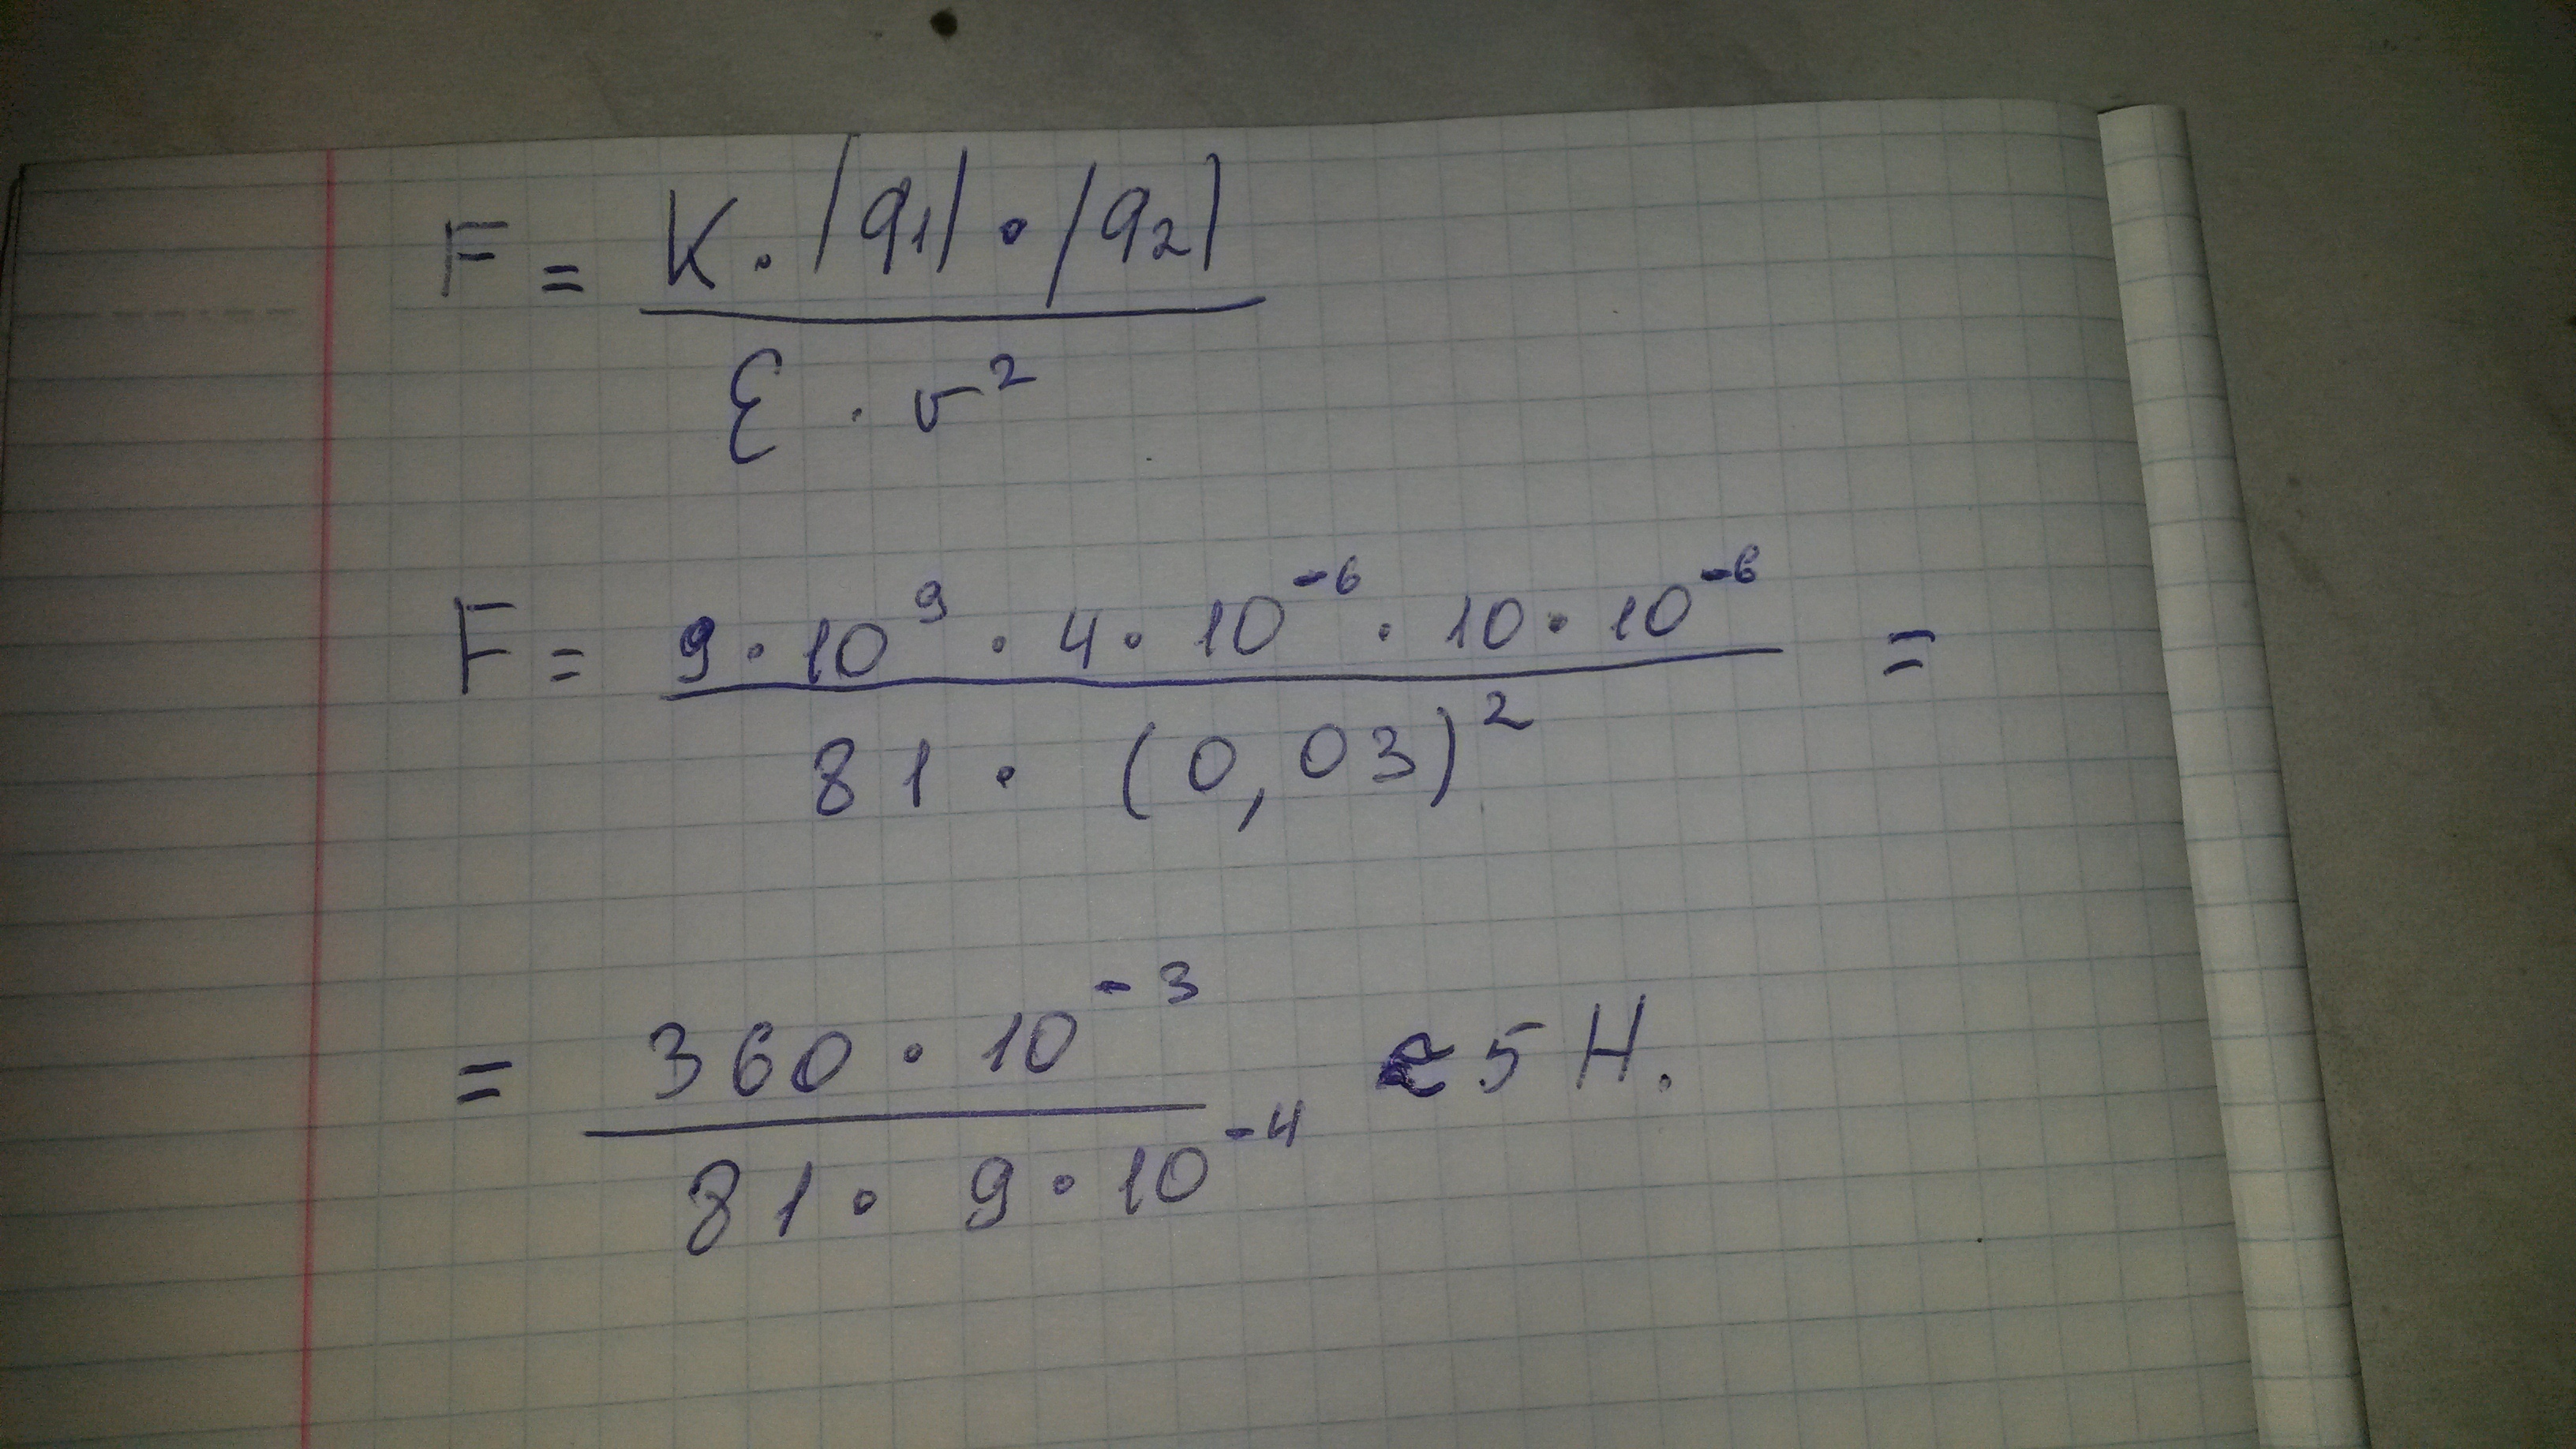 F = K · |q₁| · |q₂| / ε · r²
F = 9 · 10⁹ · 4 · 10⁻⁶ · 10 · 10⁻⁶ / 81 · (0,03)² =
= 360 · 10⁻³ / 81 · 9 · 10⁻⁴ ≈ 5 Н.